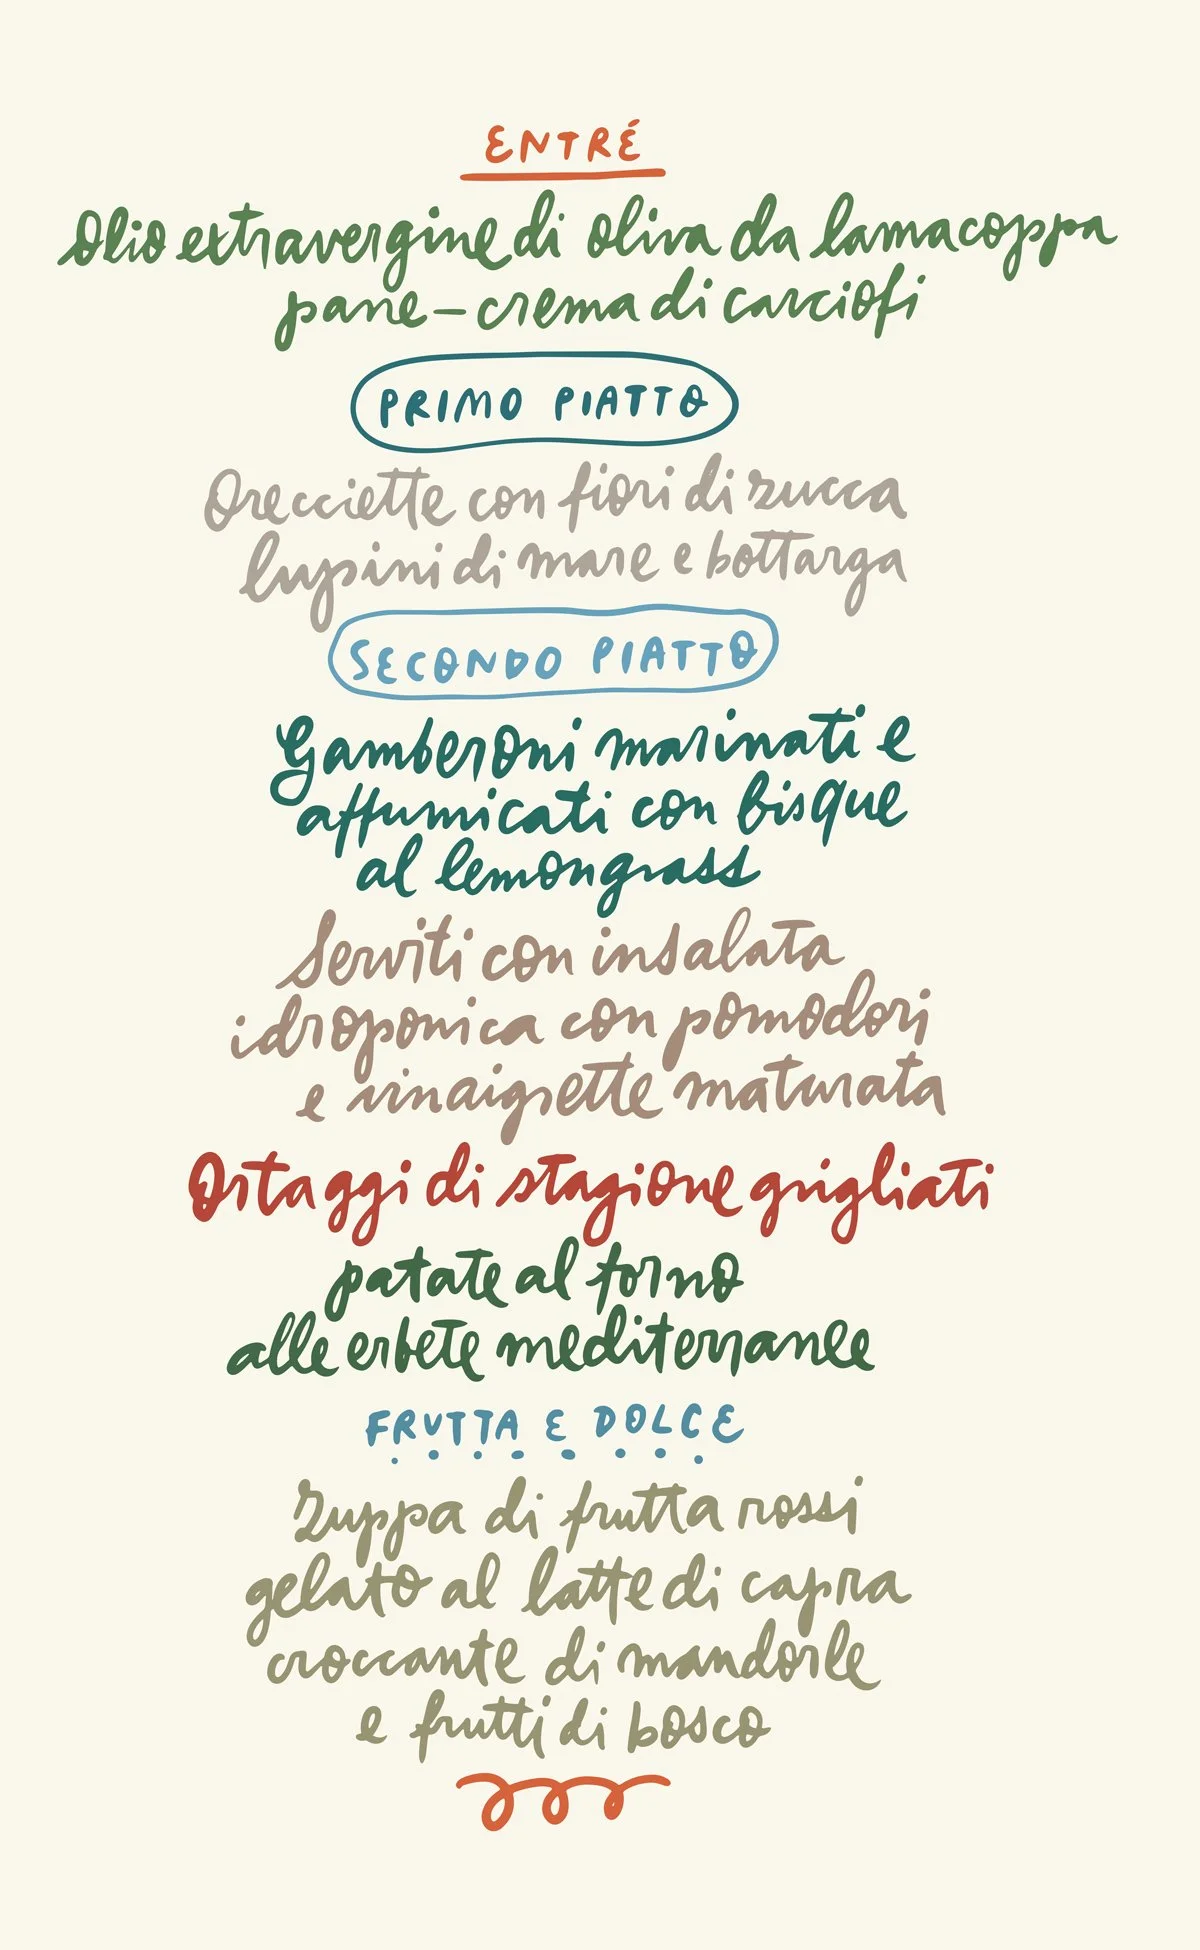 ENTRÉ
Olio extravergine di oliva da lamacoppa
pane – crema di carciofi
PRIMO PIATTO
Orecciette con fiori di zucca
lupini di mare e bottarga
SECONDO PIATTO
Gamberoni marinati e
affumicati con bisque
al lemongrass
Serviti con insalata
idroponica con pomodori
e vinaigrette maturata
Ortaggi di stagione grigliati
patate al forno
alle erbete mediterranee
FRUTTA E DOLCE
Zuppa di frutta rossi
gelato al latte di capra
croccante di mandorle
e frutti di bosco